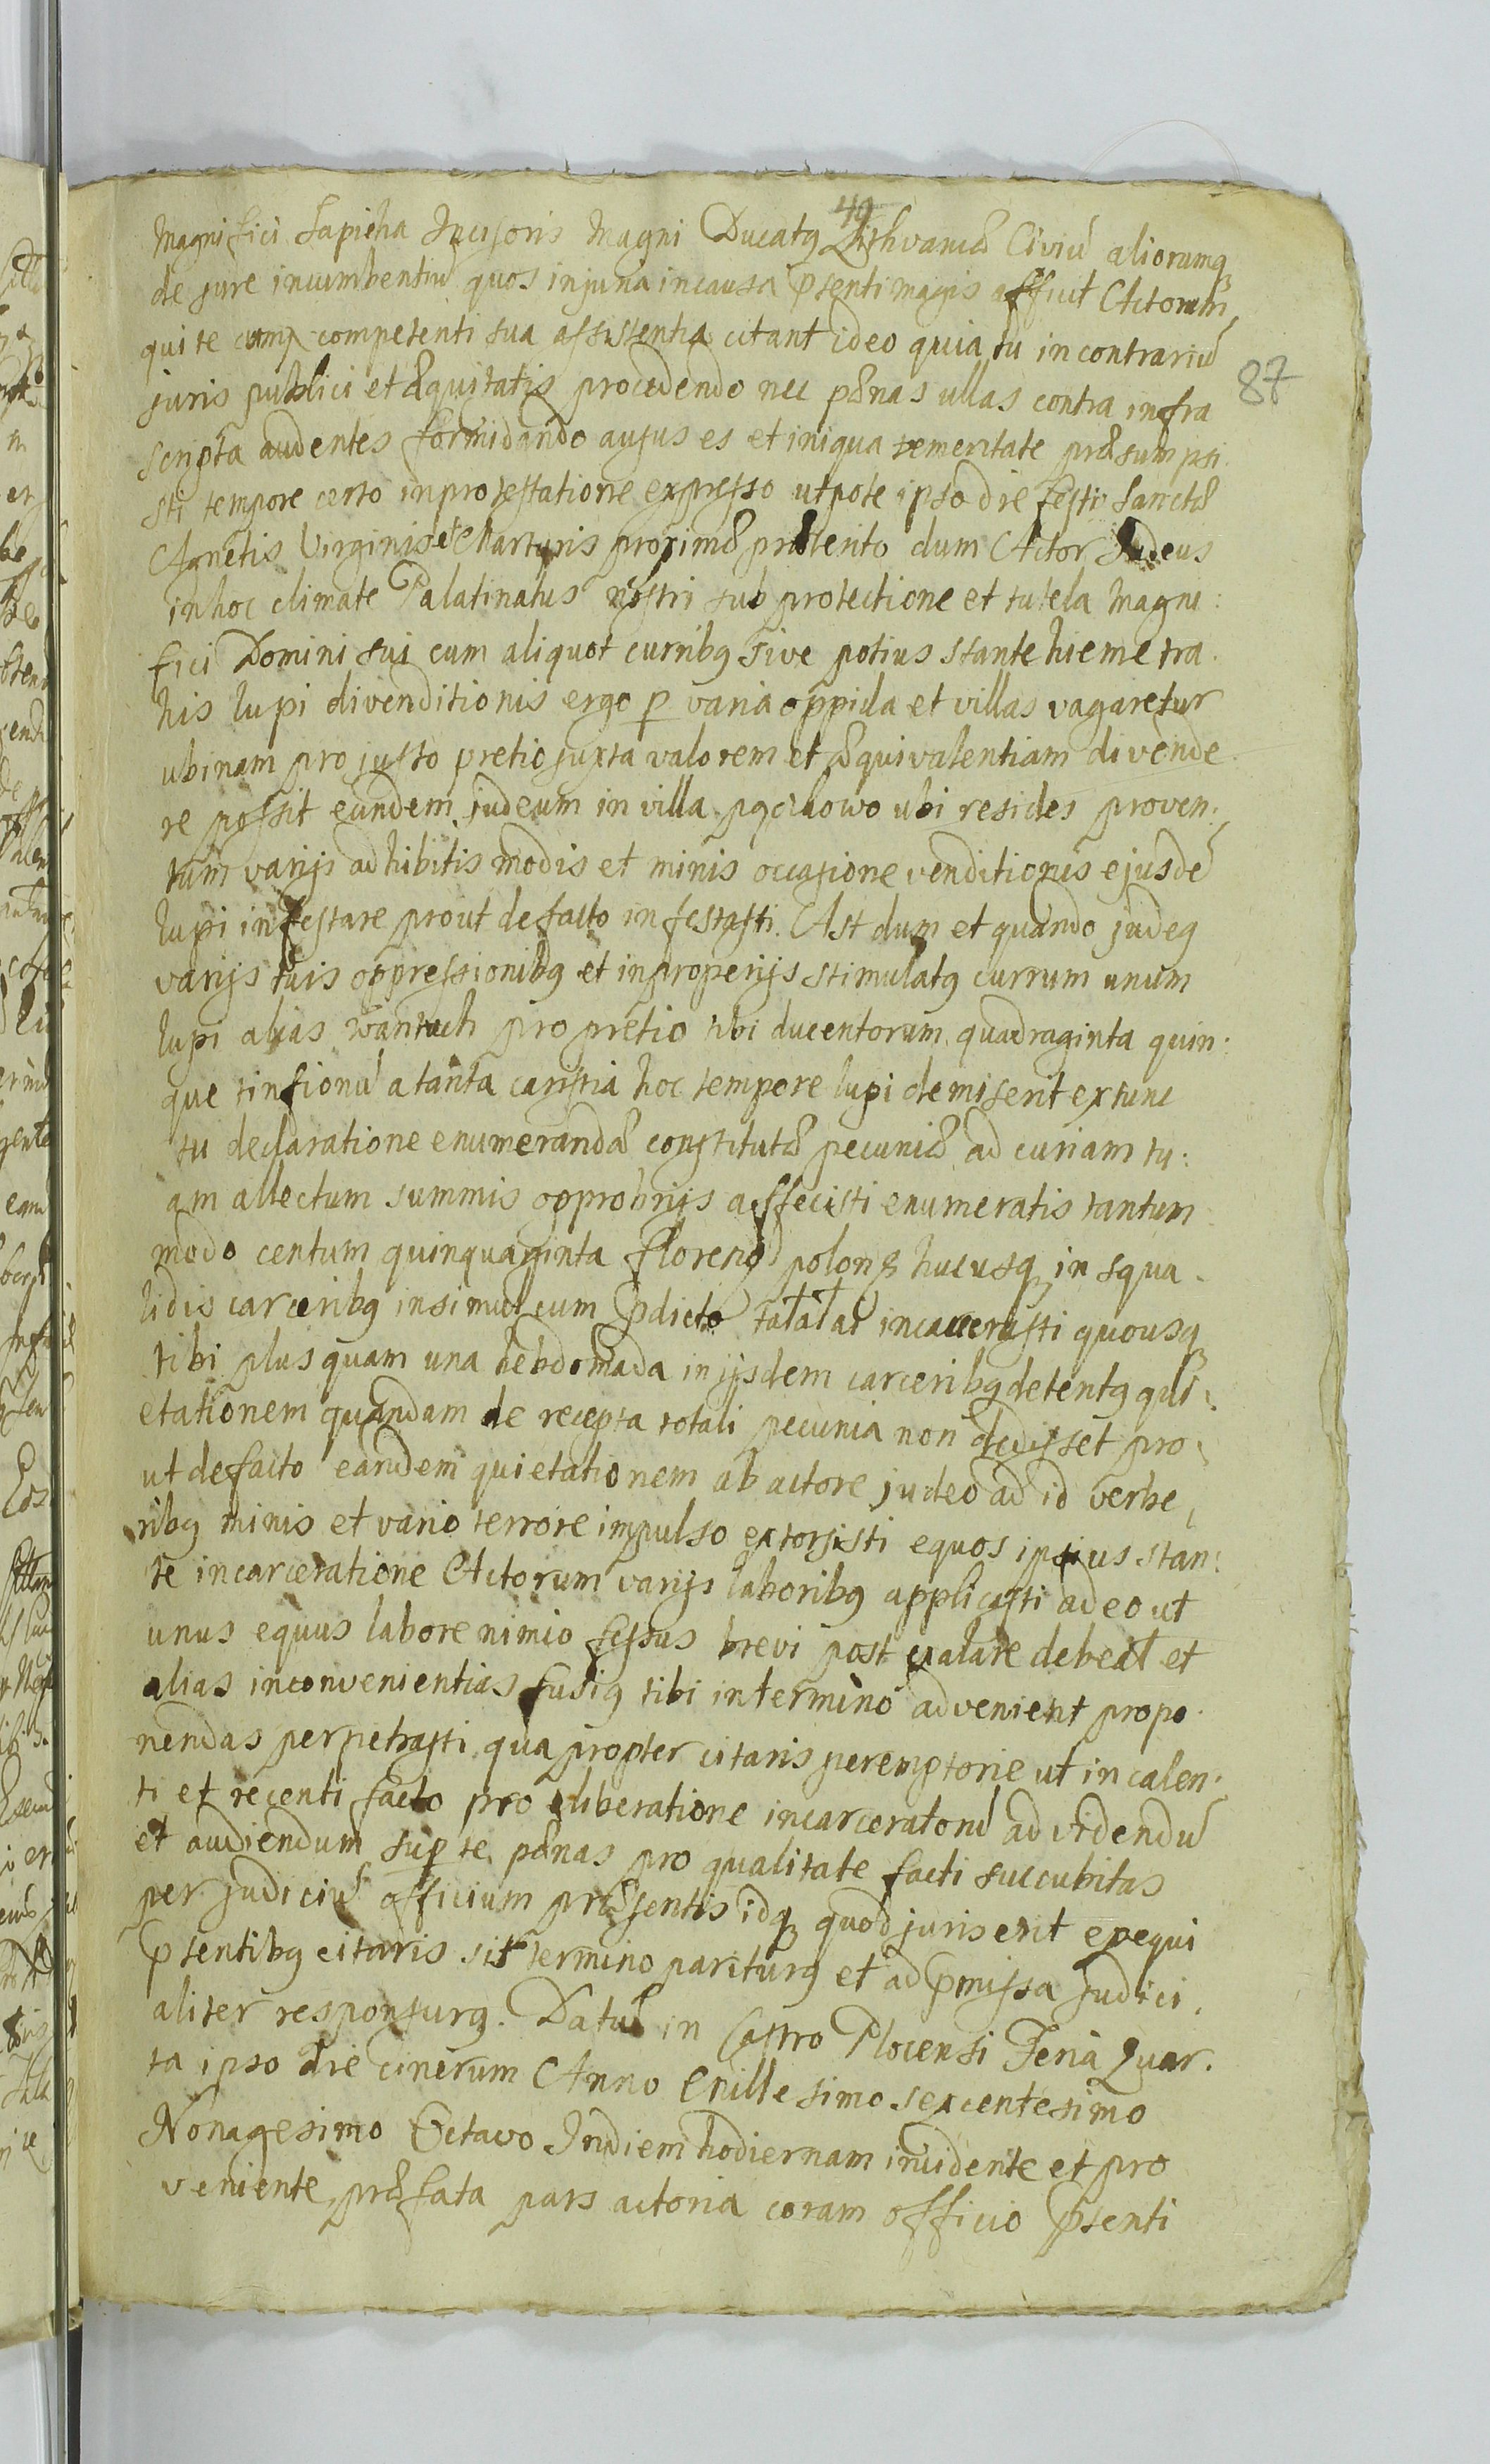 49
Magnifici Sapieha Incisoris Magni Ducatus Lithvaniæ Civiū aliorumq
de jure incumbentiū quos injuria in causa pñsenti magis afficit Actorum
qui te cum competenti sua assistentia citant ideo quia tu in contrariū
87
juris publici et æquitatis procedendo nec pænas ullas contra infra
scripta audentes formidando ausus es et iniqua temeritate præsumpsi.
sti tempore certo in protestatione expresso utpote ipso die festi Sanctæ
Agnetis Virginis et Martyris proxime præterito dum Actor Judeus
in hoc climate Palatinatus nostri sub protectione et tutela Magni:
fici Domini sui cum aliquot curribus sive potius stante hieme tra.
his lupi divenditionis ergo p varia oppida et villas vagaretur
ubinam pro justo pretio juxta valorem et æquivalentiam divende.
re possit eundem judeum in villa ubi resides proven:
tum varijs adhibitis modis et minis occasione venditionis ejusdē
lupi infestare prout de facto infestasti. Ast dum et quando judeus
varijs tuis oppressionibus et improperijs stimulatus currum unum
lupi alias wantuch pro pretio tibi ducentorum quadraginta quin:
que tinfionū a tanta caristia hoc tempore lupi demiserit ex tunc
tu declaratione enumerandæ constitutæ pecuniæ ad curiam tu:
am allectum summis opprobrijs affecisti enumeratis tantum
modo centum quinquaginta floreno polon hucusq in squa.
lidis carceribus insimul cum pdicto incarcerasti quousq
tibi plus quam una hebdomada in ijsdem carceribus detentus qui:
etationem quandam de recepta totali pecunia non dedisset pro:
ut de facto eandem quietationem ab actore judeo ad id verbe,
ribus minis et vario terrore impulso extorsisti equos ipsius stan:
te incarceratione Actorum varijs laboribus applicasti adeo ut
unus equus labore nimio fessus brevi post exalare debeat et
alias inconvenientias fusius tibi in termino advenient propo.
nendas perpetrasti quapropter citaris peremptorie ut in calen:
ti et recenti facto pro eliberatione incarceratorū ad videndū
et audiendum super te pænas pro qualitate facti succubitas
per judiciū officium præsentis idq quod juris erit exequi
pñsentibus citaris sis termino pariturus et ad pmissa Judici.
aliter responsurus. Datū in Castro Plocensi Feria Quar.
ta ipso die cinerum Anno Millesimo sexcentesimo
Nonagesimo Octavo In diem hodiernam incidente et pro
veniente præfata pars actoria coram officio pñsenti